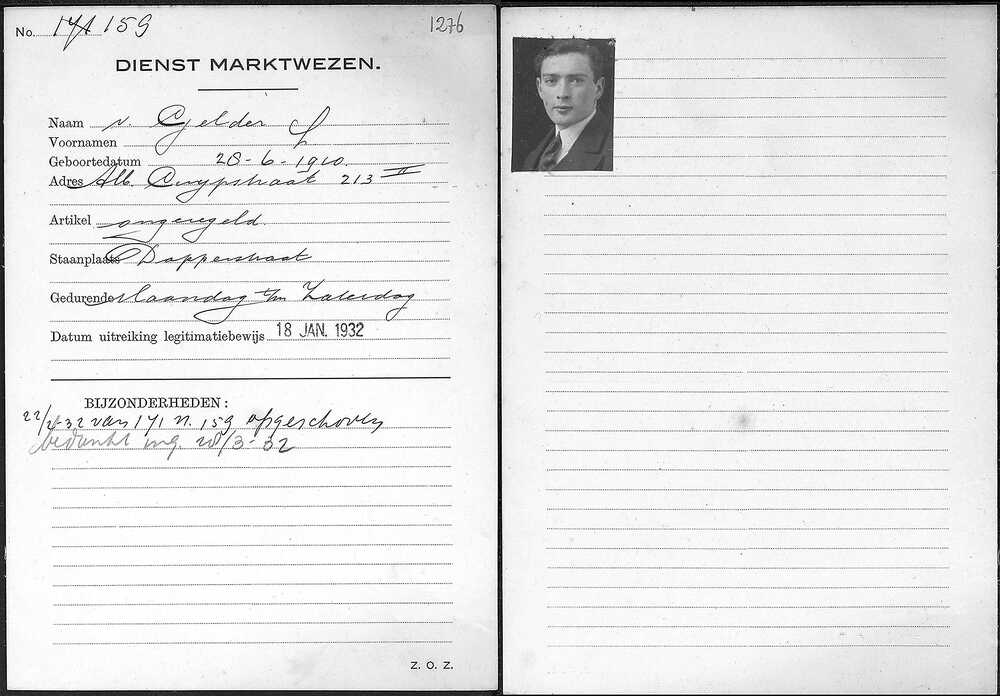 No. 171 159
1276
DIENST MARKTWEZEN.
Naam v. Gelder S
Voornamen
Geboortedatum 28-6-1910.
Adres Alb. Cuypstraat 213 II
Artikel ongeregeld.
Staanplaats Dapperstraat
Gedurende Maandag t/m Zaterdag
Datum uitreiking legitimatiebewijs 18 JAN. 1932
BIJZONDERHEDEN:
22/2-32 van 171 n. 159 opgeschoven
bedankt ing. 20/3-32
Z. O. Z.